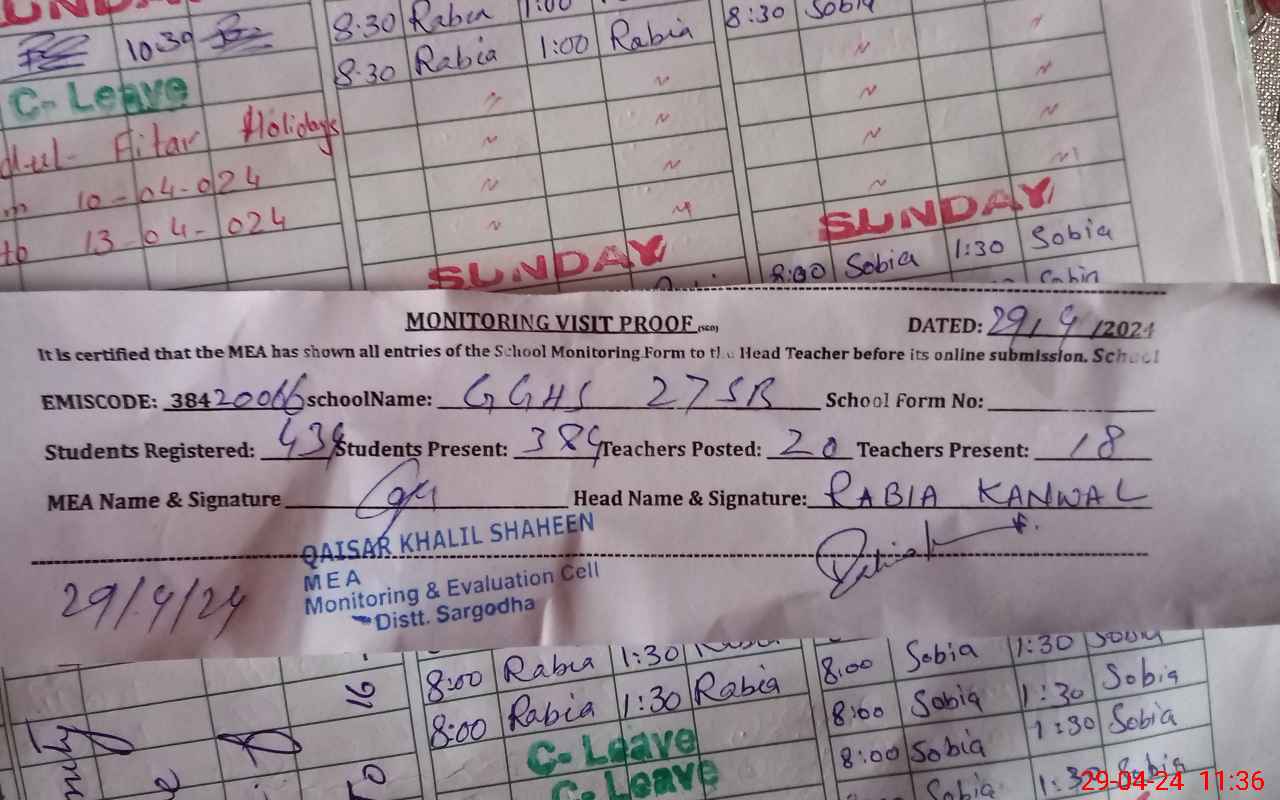 10:30 8:30 Rabia 1:00 8:30 Sobia
8:30 Rabia 1:00 Rabia
C- Leave
Fitar Holidays
10-04-024
to 13-04-024
SUNDAY
SUNDAY
8:00 Sobia 1:30 Sobia
MONITORING VISIT PROOF (SED) DATED: 29/4/2024
It is certified that the MEA has shown all entries of the School Monitoring Form to the Head Teacher before its online submission. School
EMISCODE: 38420066 schoolName: GGHS 27SB School Form No:
Students Registered: 434 Students Present: 384 Teachers Posted: 20 Teachers Present: 18
MEA Name & Signature Head Name & Signature: RABIA KANWAL
QAISAR KHALIL SHAHEEN
MEA
Monitoring & Evaluation Cell
Distt. Sargodha
29/4/24
8:00 Rabia 1:30 8:00 Sobia 1:30 Sobia
16 8:00 Rabia 1:30 Rabia 8:00 Sobia 1:30 Sobia
C- Leave 8:00 Sobia 1:30 Sobia
C- Leave Sobia 1:30 Sobia
29-04-24 11:36